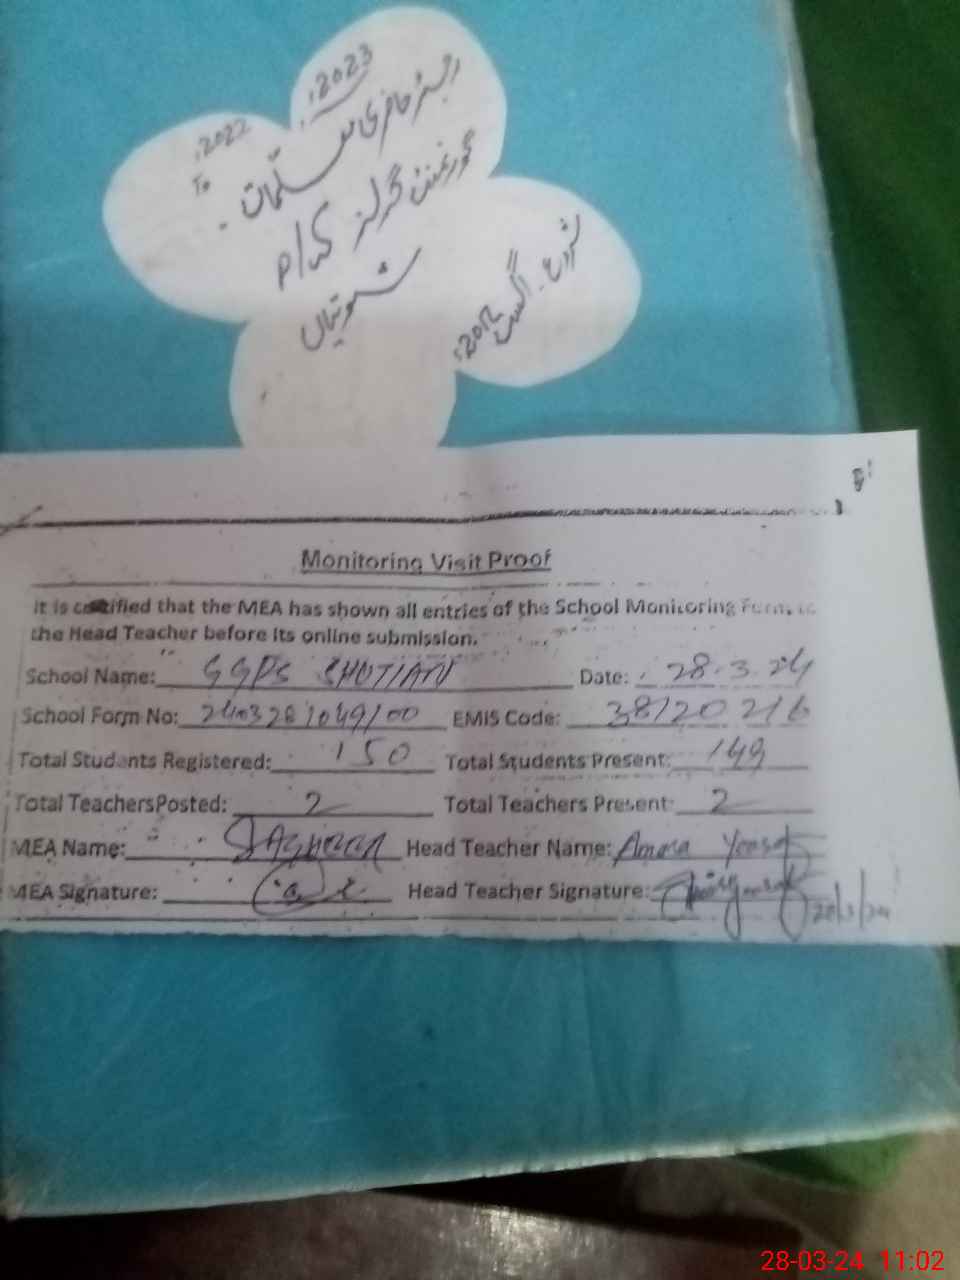 2023ء
رجسٹر حاضری
2022ء
To
معلمات
گورنمنٹ گرلز
شوتیاں
شروع۔ اگست
2012ء
Monitoring Visit Proof
It is certified that the MEA has shown all entries of the School Monitoring Form, to
the Head Teacher before its online submission.
School Name: GGPS SHOTIAN Date: 28.3.24
School Form No: 2403281049100 EMIS Code: 38120216
Total Students Registered: 150 Total Students Present: 149
Total TeachersPosted: 2 Total Teachers Present: 2
MEA Name: Head Teacher Name: Amara Yousaf
MEA Signature: Head Teacher Signature: 28/3/24
28-03-24 11:02